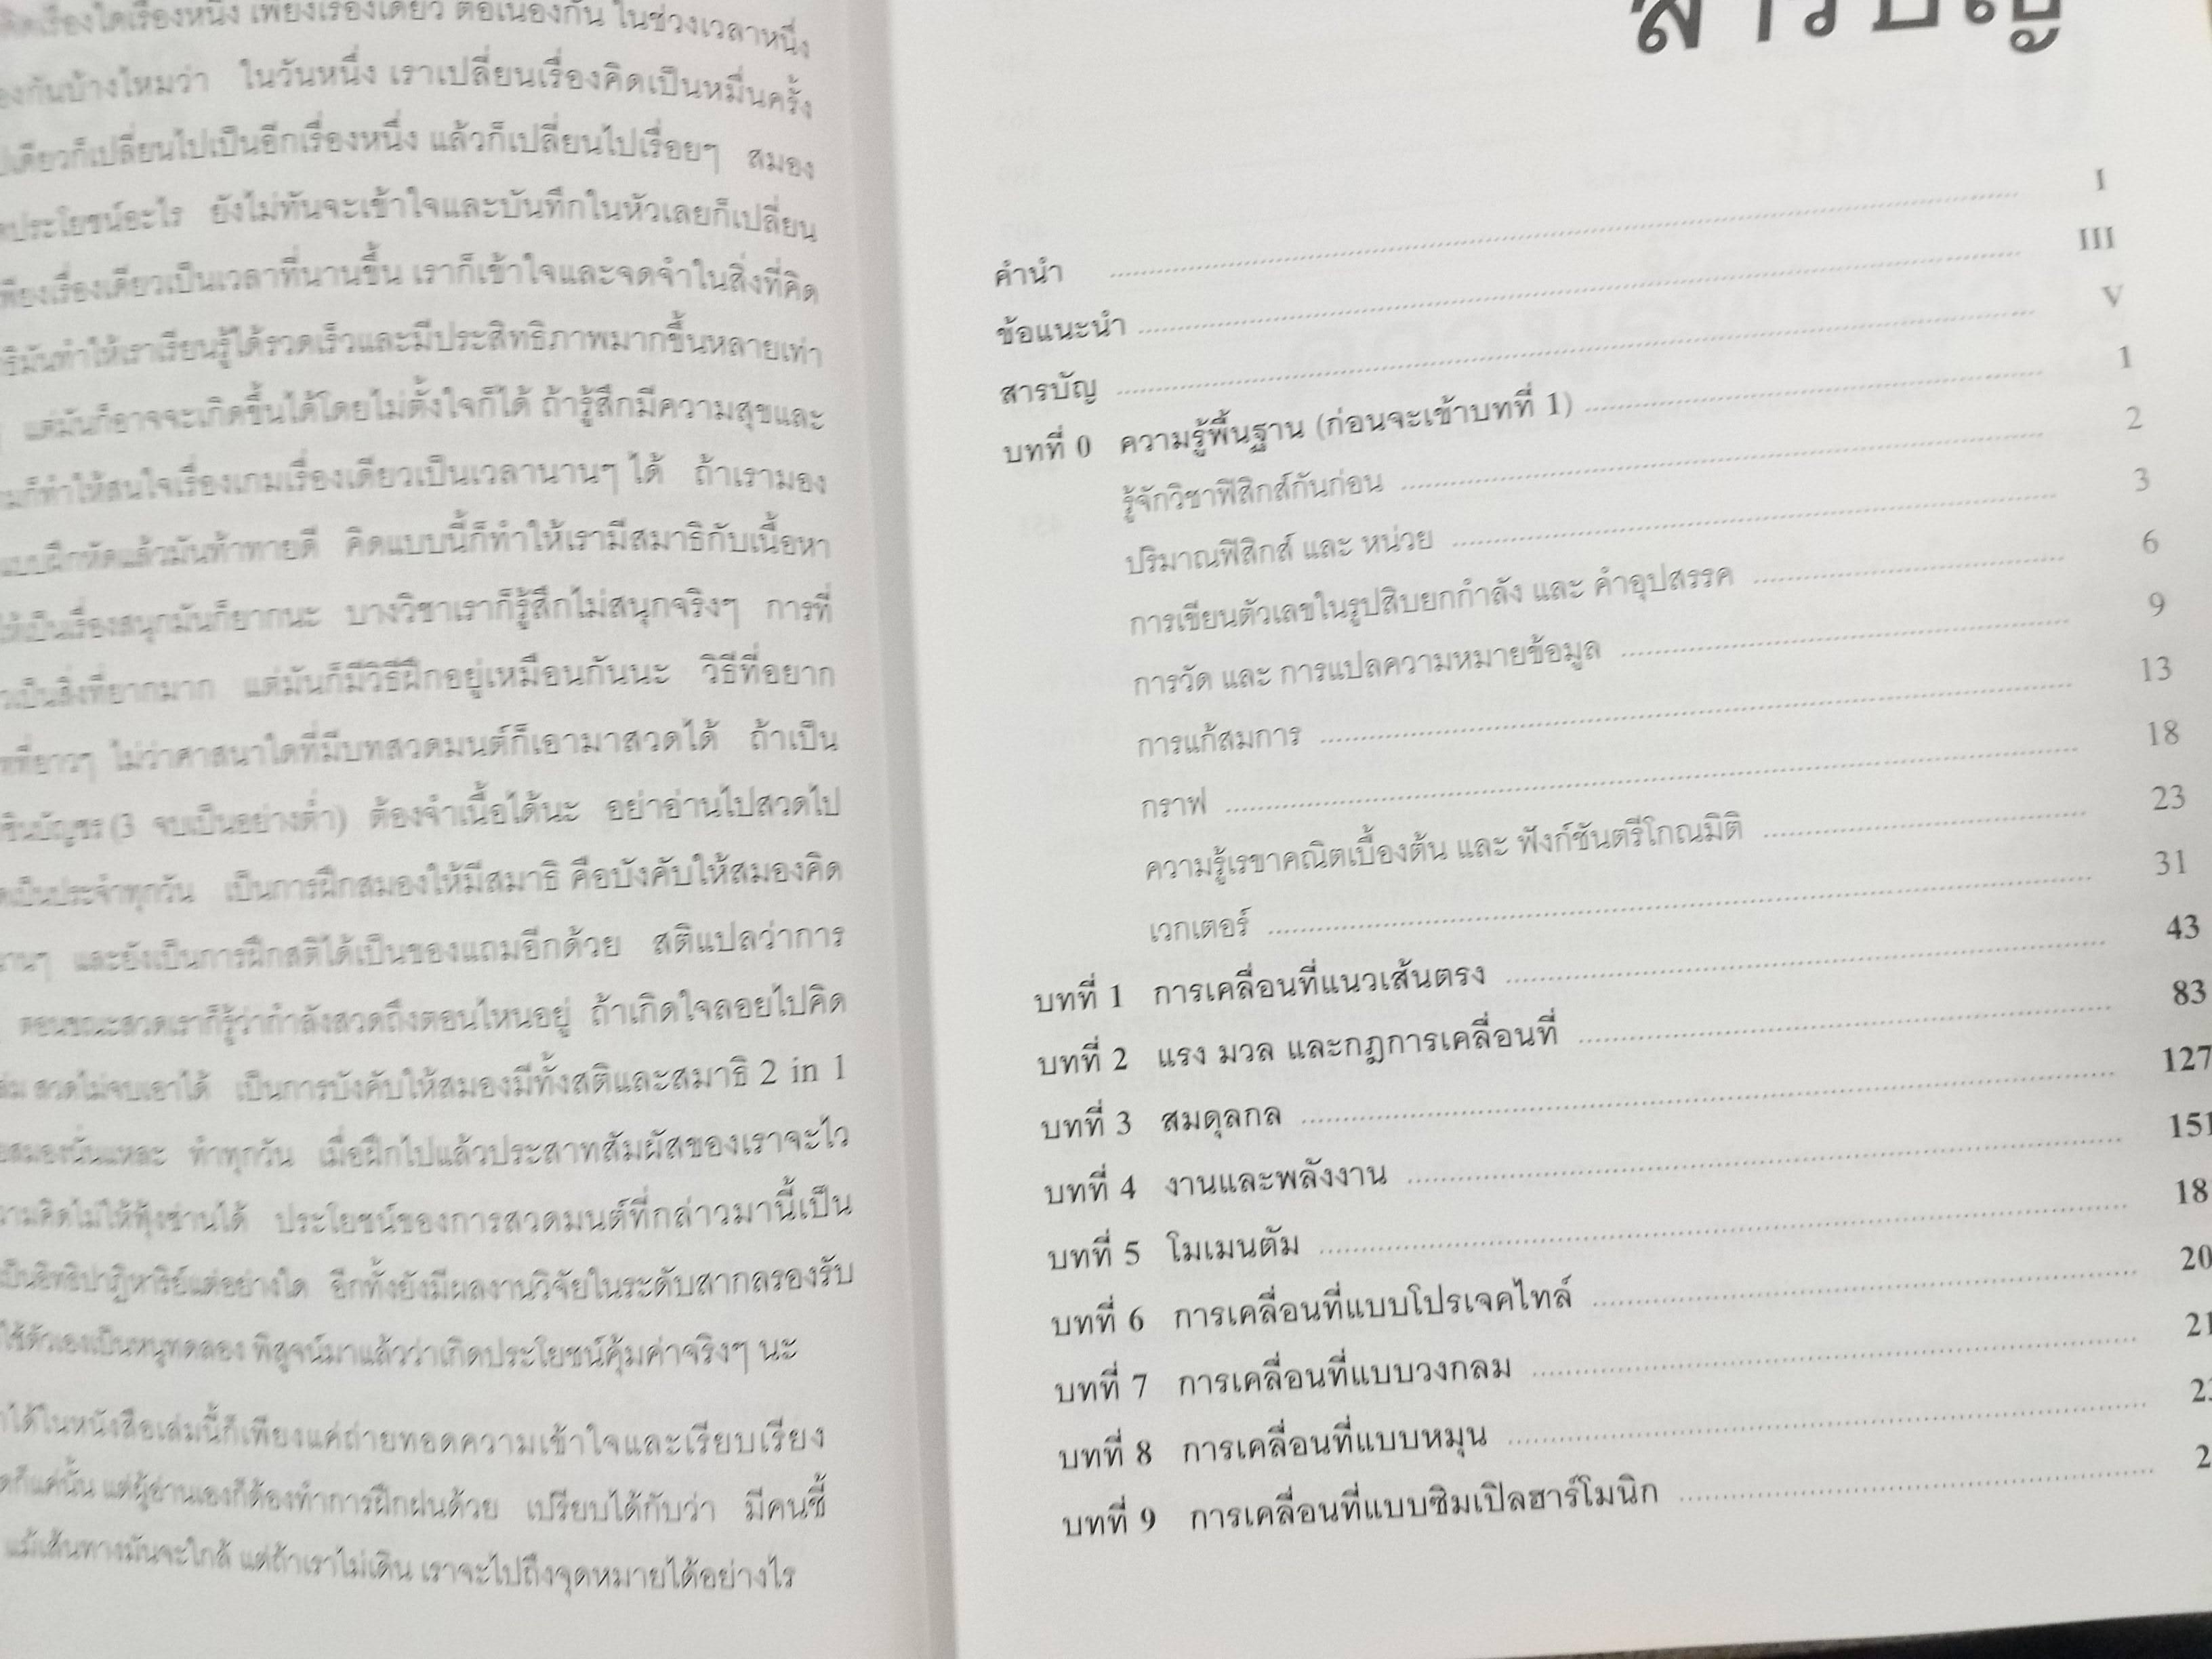 คิดเรื่องใดเรื่องหนึ่ง เพียงเรื่องเดียว ต่อเนื่องกัน ในช่วงเวลาหนึ่ง
กันบ้างไหมว่า ในวันหนึ่ง เราเปลี่ยนเรื่องคิดเป็นหมื่นครั้ง
เดียวก็เปลี่ยนไปเป็นอีกเรื่องหนึ่ง แล้วก็เปลี่ยนไปเรื่อยๆ สมอง
ประโยชน์อะไร ยังไม่ทันจะเข้าใจและบันทึกในหัวเลยก็เปลี่ยน
เพียงเรื่องเดียวเป็นเวลาที่นานขึ้น เราก็เข้าใจและจดจำในสิ่งที่คิด
มันทำให้เราเรียนรู้ได้รวดเร็วและมีประสิทธิภาพมากขึ้นหลายเท่า
แต่มันก็อาจจะเกิดขึ้นได้โดยไม่ตั้งใจก็ได้ ถ้ารู้สึกมีความสุขและ
ก็ทำให้สนใจเรื่องเกมเรื่องเดียวเป็นเวลานานๆ ได้ ถ้าเรามอง
แบบฝึกหัดแล้วมันท้าทายดี คิดแบบนี้ก็ทำให้เรามีสมาธิกับเนื้อหา
ให้เป็นเรื่องสนุกมันก็ยากนะ บางวิชาเราก็รู้สึกไม่สนุกจริงๆ การที่
เป็นสิ่งที่ยากมาก แต่มันก็มีวิธีฝึกอยู่เหมือนกันนะ วิธีที่อยาก
ที่ยาวๆ ไม่ว่าศาสนาใดที่มีบทสวดมนต์ก็เอามาสวดได้ ถ้าเป็น
ชินบัญชร (3 จบเป็นอย่างต่ำ) ต้องจำเนื้อได้นะ อย่าอ่านไปสวดไป
เป็นประจำทุกวัน เป็นการฝึกสมองให้มีสมาธิ คือบังคับให้สมองคิด
นานๆ และยังเป็นการฝึกสติได้เป็นของแถมอีกด้วย สติแปลว่าการ
ตอนขณะสวดเราก็รู้ว่ากำลังสวดถึงตอนไหนอยู่ ถ้าเกิดใจลอยไปคิด
สวดไม่จบเอาได้ เป็นการบังคับให้สมองมีทั้งสติและสมาธิ 2 in 1
สมองนั่นแหละ ทำทุกวัน เมื่อฝึกไปแล้วประสาทสัมผัสของเราจะไว
ความคิดไม่ให้ฟุ้งซ่านได้ ประโยชน์ของการสวดมนต์ที่กล่าวมานี้เป็น
เป็นอิทธิปาฏิหาริย์แต่อย่างใด อีกทั้งยังมีผลงานวิจัยในระดับสากลรองรับ
ใช้ตัวเองเป็นหนูทดลอง พิสูจน์มาแล้วว่าเกิดประโยชน์คุ้มค่าจริงๆ นะ
ได้ในหนังสือเล่มนี้ก็เพียงแค่ถ่ายทอดความเข้าใจและเรียบเรียง
ก็แค่นั้น แต่ผู้อ่านเองก็ต้องทำการฝึกฝนด้วย เปรียบได้กับว่า มีคนชี้
แม้เส้นทางมันจะใกล้ แต่ถ้าเราไม่เดิน เราจะไปถึงจุดหมายได้อย่างไร
สารบัญ
คำนำ I
ข้อแนะนำ III
สารบัญ V
บทที่ 0 ความรู้พื้นฐาน (ก่อนจะเข้าบทที่ 1) 1
รู้จักวิชาฟิสิกส์กันก่อน 2
ปริมาณฟิสิกส์ และ หน่วย 3
การเขียนตัวเลขในรูปสิบยกกำลัง และ คำอุปสรรค 6
การวัด และ การแปลความหมายข้อมูล 9
การแก้สมการ 13
กราฟ 18
ความรู้เรขาคณิตเบื้องต้น และ ฟังก์ชันตรีโกณมิติ 23
เวกเตอร์ 31
บทที่ 1 การเคลื่อนที่แนวเส้นตรง 43
บทที่ 2 แรง มวล และกฎการเคลื่อนที่ 83
บทที่ 3 สมดุลกล 127
บทที่ 4 งานและพลังงาน 151
บทที่ 5 โมเมนตัม 18
บทที่ 6 การเคลื่อนที่แบบโปรเจคไทล์ 20
บทที่ 7 การเคลื่อนที่แบบวงกลม 21
บทที่ 8 การเคลื่อนที่แบบหมุน 2
บทที่ 9 การเคลื่อนที่แบบซิมเปิลฮาร์โมนิก 2